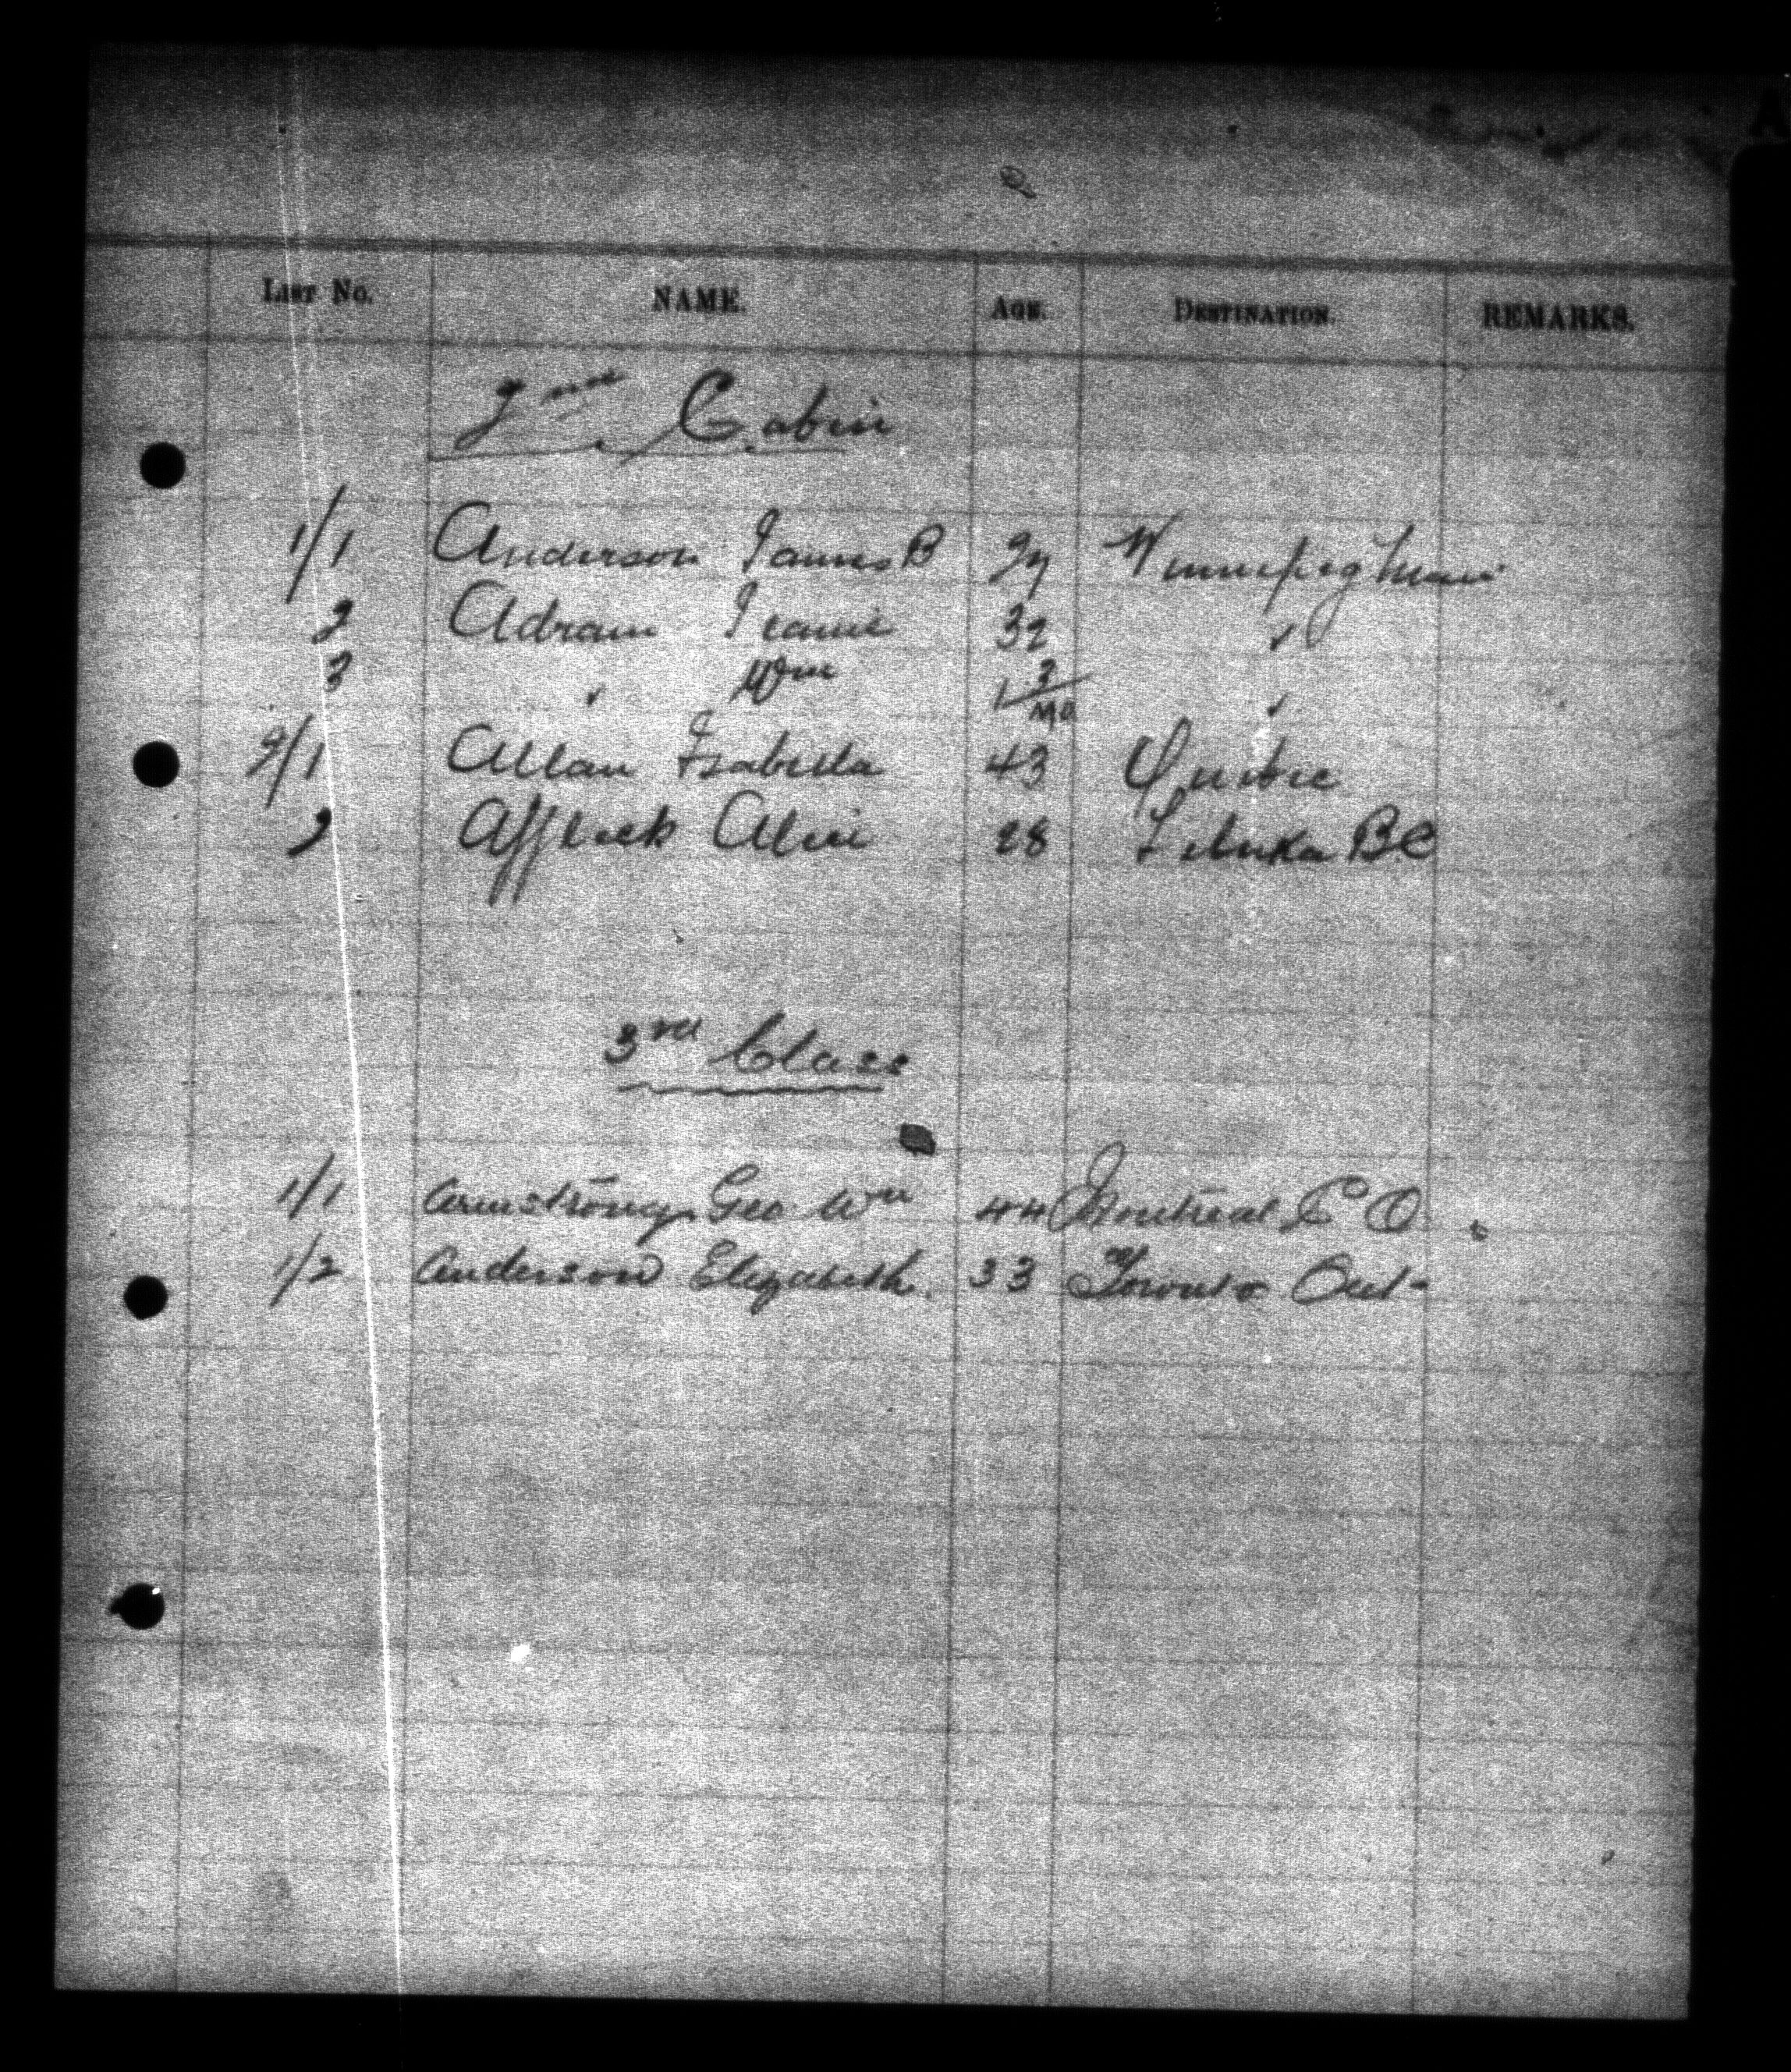 LIST No. NAME. AGE. DESTINATION. REMARKS.
2nd Cabin
1/1 Anderson James B 27 Winnipeg Man
2 Adram Jeanie 32 "
3 " Wm 1 3/Mo "
2/1 Allan Isabella 43 Quebec
2 Affleck Alice 28 B.C
3rd Class
1/1 Armstrong Geo Wm 44 Montreal P Q
1/2 Anderson Elizabeth. 33 Toronto Ont-